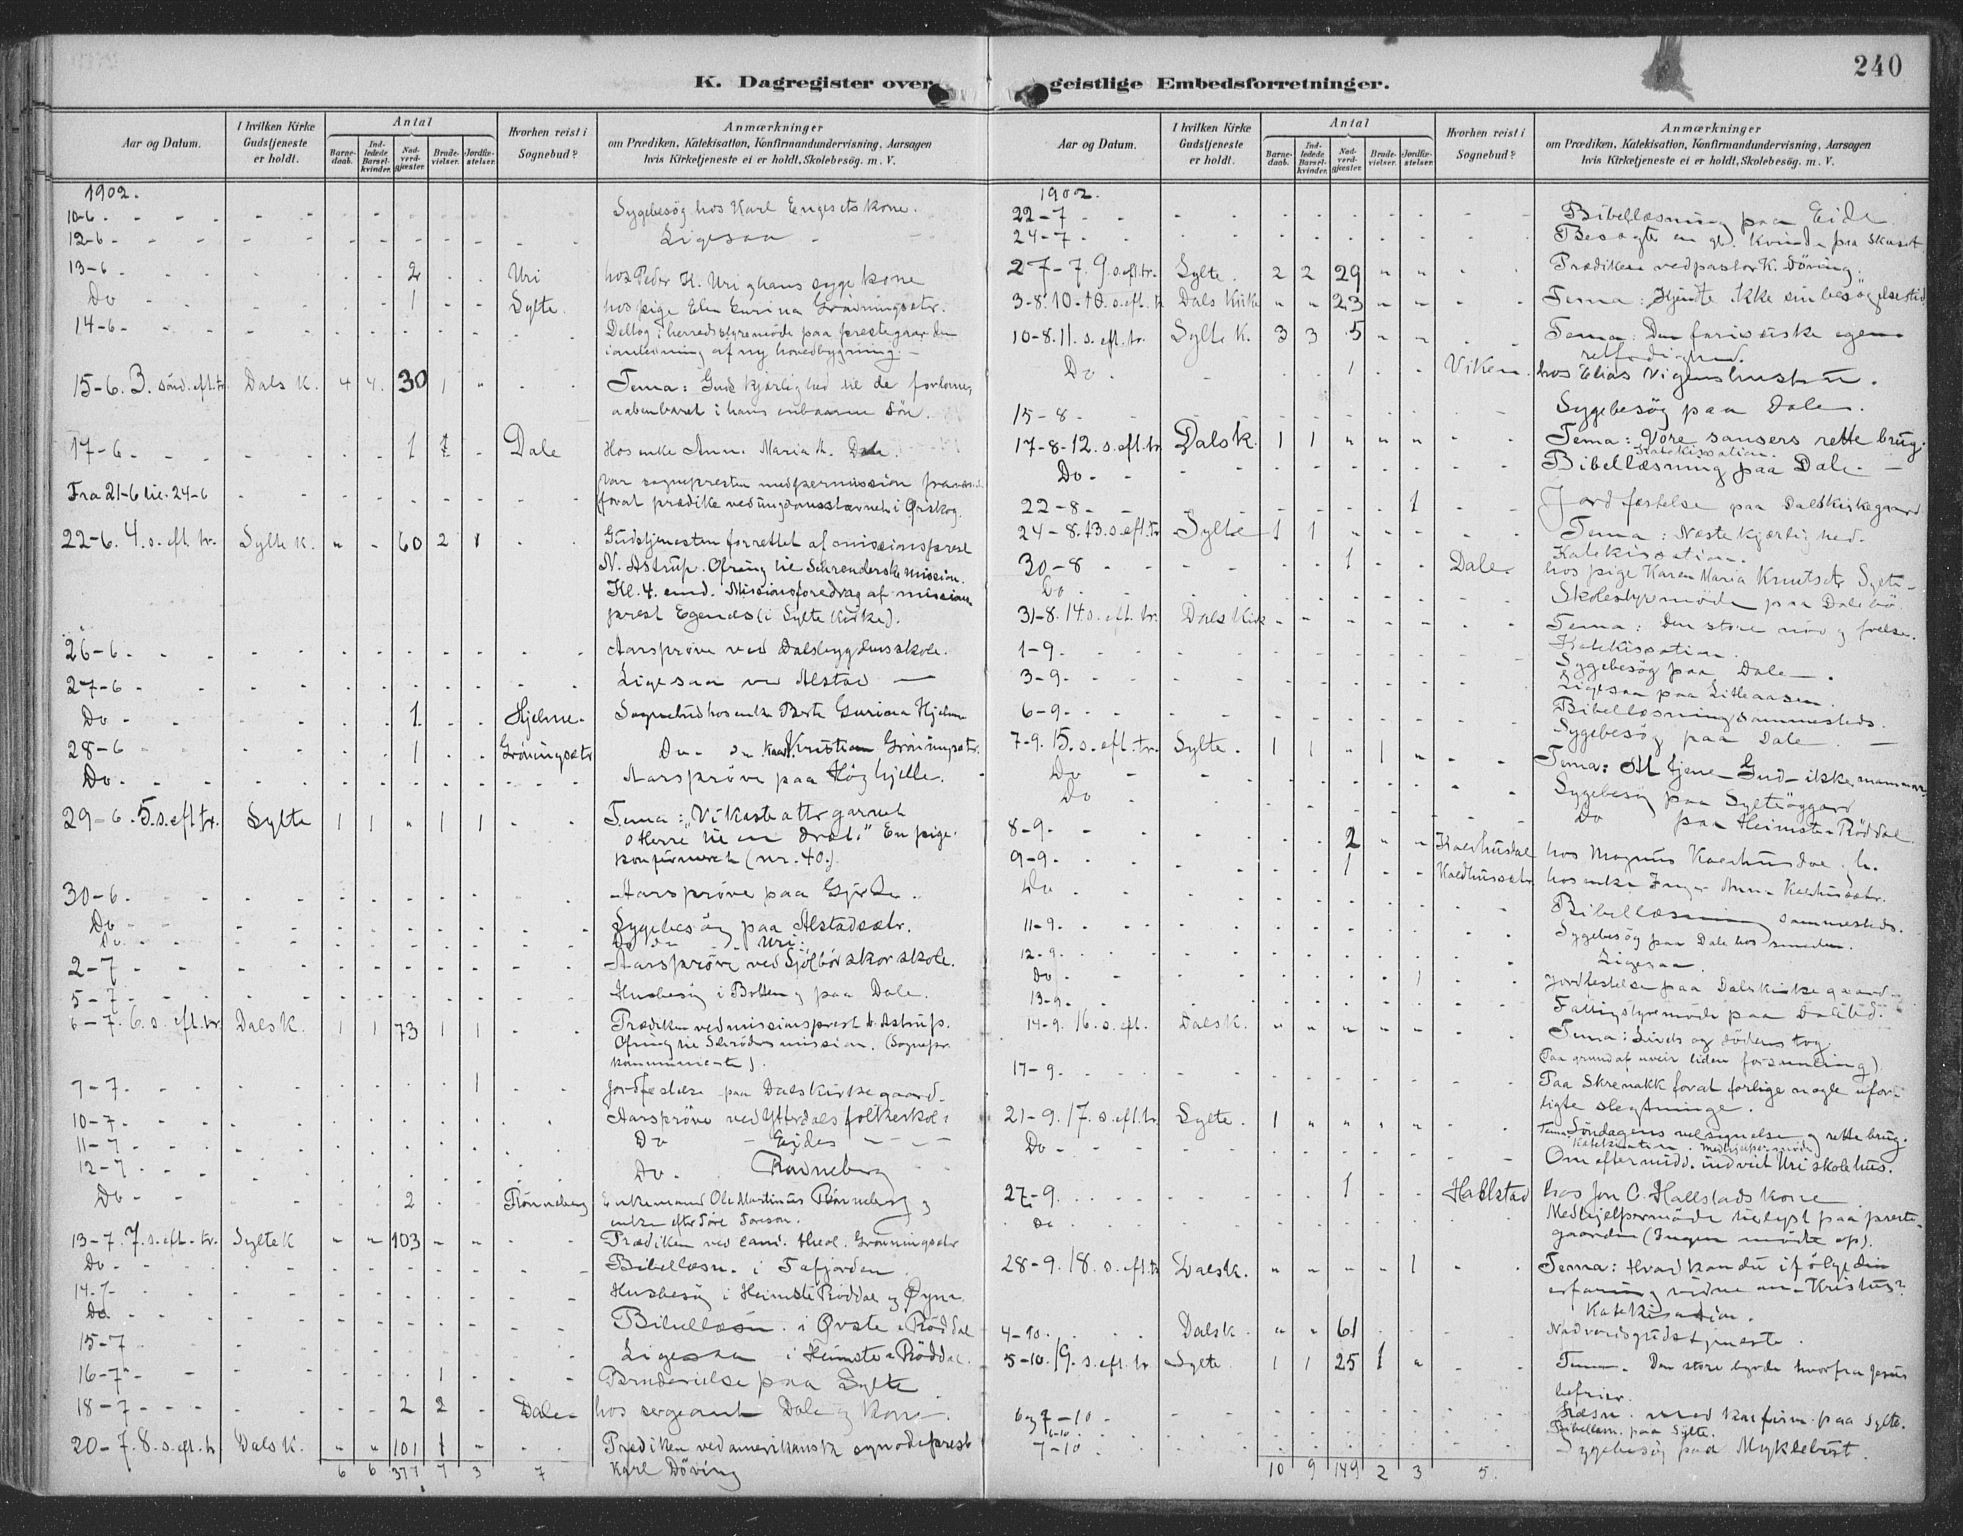 240
K. Dagregister over geistlige Embedsforretninger.
Aar og Datum. I hvilken Kirke Gudstjeneste er holdt. Antal Barnedaab. Indledede Barselkvinder. Nadverdgjæster. Brudevielser. Jordfæstelser. Hvorhen reist i Sognebud? Anmærkninger om Prædiken, Katekisation, Konfirmandundervisning, Aarsagen hvis Kirketjeneste ei er holdt, Skolebesøg. m. V.
1902.
10-6 Sygebesøg hos Karl Engesets kone.
12-6 Ligesaa
13-6 2 Uri hos Peder K. Uri & hans syge kone
Do 1 Sylte. hos pige Elen Gurina Grønningsætr.
14-6 Deltog i herredsstyremøde paa prestegaarden
i anledning af ny hovedbygning.
15-6. 3. sønd. eft. tr. Dals K. 4 4 30 1 Tema: Guds kjærlighed til de fortorne,
aabenbaret i hans enbaarne søn.
17-6 1 Dale Hos enke Ann. Maria
Fra 21-6 til 24-6 Var sognepresten med permission
forat prædike ved ungdomsstævnet i Ørskog.
22-6. 4. s. eft. tr. Sylte K. 60 2 1 Gudstjenesten forrettet af missionsprest
N. Astrup. Ofring til Schreuderske mission.
Kl. 4 emd. Missionsforedrag af missions-
prest Egenæs (i Sylte Kirke).
26-6 Aarsprøve ved Dalsbygdens skole.
27-6 Ligesaa ved Alstad
Do 1 Hjelme Sognebud hos enke Berte Gurina Hjelme
28-6 1 Grøningsætr Do Kristian Grøningsætr.
Do Aarsprøve paa Høghjelle.
29-6. 5. s. eft tr. Sylte 1 1 1 1 Tema: "Vi kaste atter garnet
o Herre til en dræt." En pige
konfirmeret (nr. 40.)
30-6. Aarsprøve paa Gjerde.
Do Sygebesøg paa Alstadsætr.
Do Uri.
2-7 Aarsprøve ved Sjølbørskor skole.
5-7 Husbesøg i Botten og paa Dale.
6-7. 6. s. eft. tr. Dals K. 1 1 73 1 1 Prædiken ved missionsprest N. Astrup.
Ofring til Schrøders mission. (Sognepr.
kommunicerte).
7-7 1 Jordfestelse paa Dalskirkegaard
10-7 Aarsprøve ved Ytterdals folkeskole
11-7 Do Eides
12-7 Do Rønneberg
Do 2 Rønneberg Enkemand Ole Martinus Rønneberg og
enke efter Tore Toreson.
13-7. 7. s. eft. tr. Sylte K 103 Prædiken ved cand. theol. Grønningsætr
Do Bibellæsn. i Tafjorden
14-7 Husbesøg i Heimste Røddal og Øyne
Do Bibellæsn. i Øvste Røddal
15-7 Ligesaa i Heimste Røddal.
16-7 1 Brudevielse paa Sylte
18-7 2 2 Dale hos sergeant Dale og kone
20-7. 8. s. eft. tr Dals K. 101 1 Prediken ved amerikansk synodeprest
Karl Døving
6 6 377 7 3 7
Aar og Datum. I hvilken Kirke Gudstjeneste er holdt. Antal Barnedaab. Indledede Barselkvinder. Nadverdgjæster. Brudevielser. Jordfæstelser. Hvorhen reist i Sognebud? Anmærkninger om Prædiken, Katekisation, Konfirmandundervisning, Aarsagen hvis Kirketjeneste ei er holdt, Skolebesøg. m. V.
1902.
22-7 Bibellæsning paa Eide
24-7 Besøgte en gl. kvinde paa
27-7. 9. s. eft. tr. Sylte. 2 2 29 Prædiken ved pastor K. Døving.
3-8. 10. s. eft. tr Dals Kirke 23 Tema: Kjendte ikke sin besøgelsestid
10-8. 11. s. eft. tr. Sylte K. 3 3 5 Tema: Den fariseiske egen-
retfædighed.
Do 1 Viken. hos Elias Vigens hustru.
15-8 Sygebesøg paa Dale.
17-8-12. s. eft. tr. Dals k. 1 1 Tema: Vore sansers rette brug.
Katekisation.
Do Bibellæsning paa Dale.
22-8 1 Jordfæstelse paa Dalskirkegaard
24-8. 13. s. eft. tr Sylte 1 1 Tema: Næstekjærlighed.
Katekisation.
30-8 1 Dale hos pige Karen Maria Knutsdtr Sylte
Do Skolestyremøde paa Dale
31-8. 14. s. eft. tr. Dals Kirk Tema: Den store nød og frelse.
Katekisation.
1-9. Sygebesøg paa Dale.
3-9. Ligesaa paa Litleaasen
6-9. Bibellæsning sammesteds.
Sygebesøg paa Dale.
7-9. 15. s. eft. tr. Sylte. 1 1 1 Tema: At tjene Gud ikke mammon
Do Sygebesøg paa Sylteøygard
Do Do paa Heimste Røddal
8-9. 2 Kaldhusdal hos Magnus Kaldhusdal
9-9. 1 Kaldhussætr. hos enke Inger Anna Kaldhussætr.
Do Bibellæsning sammesteds.
11-9. Sygebesøg paa Dale hos smeden.
12-9. Ligesaa.
Do 1 Jordfestelse paa Dalskirkegaard
13-9. Fattigstyremøde paa
14-9. 16. s. eft. Dals k. Tema: Livets og dødens tog.
(Paa grund af uveir liden forsamling)
17-9. Paa Skrenakk forat forlige nogle ufor-
ligte slegtninge.
21-9. 17. s. eft. tr. Sylte. 1 Tema Søndagens velsignelse og rette brug.
Katekisation. Medhjelpermøde
Do Om eftermidd. indviet Uri skolehus.
27-9. 1 Hallstad hos Jon C. Hallstads kone
Do Medhjelpermøde tillyst paa preste-
gaarden (Ingen mødte op).
28-9. 18. s. eft. tr Dals k. 1 Tema: Hvad kan du ifølge din
erfaring vidne om Kristus?
Katekisation.
4-10. Dals k. 61 Nadverdgudstjeneste.
5-10. 19. s. eft. tr Sylte. 1 1 25 1 Tema. Den store byrde hvorfra Jesus
befrier.
6 og 7-10 Læsn. med konfirm. paa Sylte.
6-10. Bibellæsn. paa Sylte.
7-10 Sygebesøg paa Myklebust.
10 9 149 2 3 5.